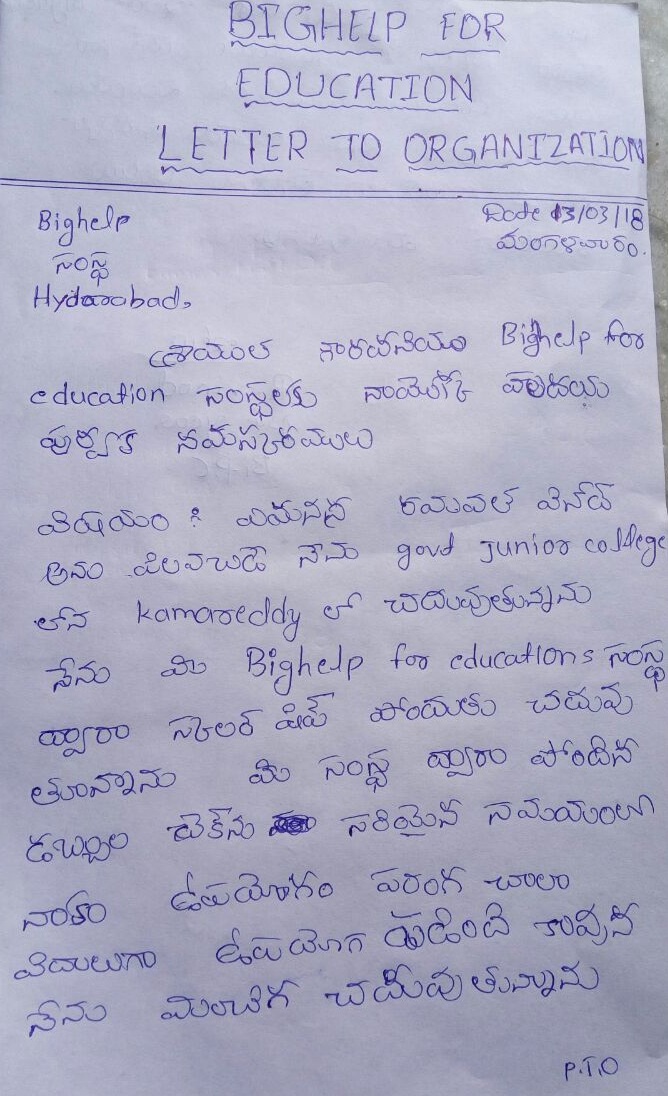 BIGHELP FOR
EDUCATION
LETTER TO ORGANIZATION
Bighelp
Date 13/03/18
సంస్థ
మంగళవారం.
Hyderabad,
గౌరవనియం Bighelp for
education సంస్థలకు నాయొక్క హృదయ
పుర్వక నమస్కారములు
విషయం :
అనం పిలవబడే నేను govt junior college
లోన kamareddy లో చదువుతున్నను
నేను మి Bighelp for educations సంస్థ
ద్వారా స్కాలర్ షిప్ పోందుతు చదువు
తూన్నాను మి సంస్థ ద్వారా పోందిన
డబ్బుల చెక్‌ను సరియైన సమయంలో
నాకు ఉపయోగం పరంగ చాలా
విదులుగా ఉపయోగ పడింది కావున
నేను మంచిగ చదువుతున్నాను
P.T.O